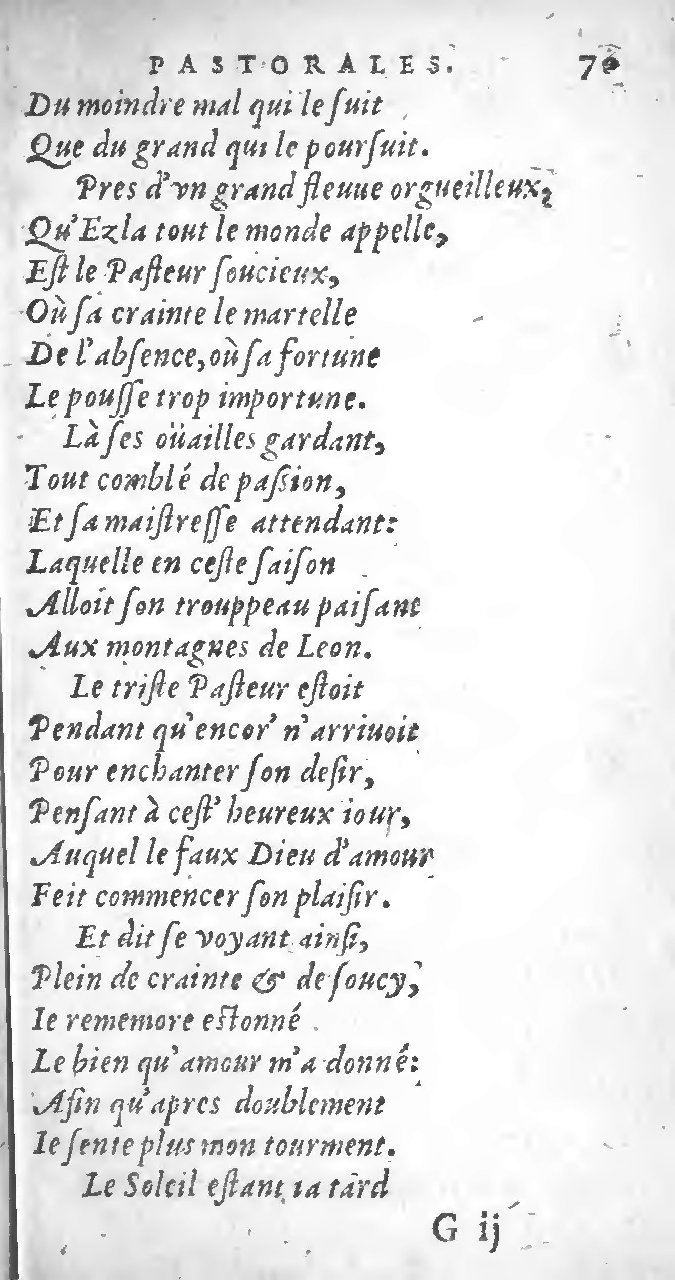 PASTORALES. 76
Du moindre mal qui le ſuit
Que du grand qui le pourſuit.
Pres d'vn grand fleuue orgueilleux,
Qu'Ezla tout le monde appelle,
Eſt le Paſteur ſoucieux,
Où ſa crainte le martelle
De l'abſence, où ſa fortune
Le pouſſe trop importune.
Là ſes oüailles gardant,
Tout comblé de paſsion,
Et ſa maiſtreſſe attendant:
Laquelle en ceſte ſaiſon
Alloit ſon trouppeau paiſant
Aux montagnes de Leon.
Le triſte Paſteur eſtoit
Pendant qu'encor' n'arriuoit
Pour enchanter ſon deſir,
Penſant à ceſt' heureux iour,
Auquel le faux Dieu d'amour
Feit commencer ſon plaiſir.
Et dit ſe voyant ainſi,
Plein de crainte & de ſoucy,
Ie rememore eſtonné
Le bien qu'amour m'a donné:
Afin qu'apres doublement
Ie ſente plus mon tourment.
Le Soleil eſtant ia tard
G ij